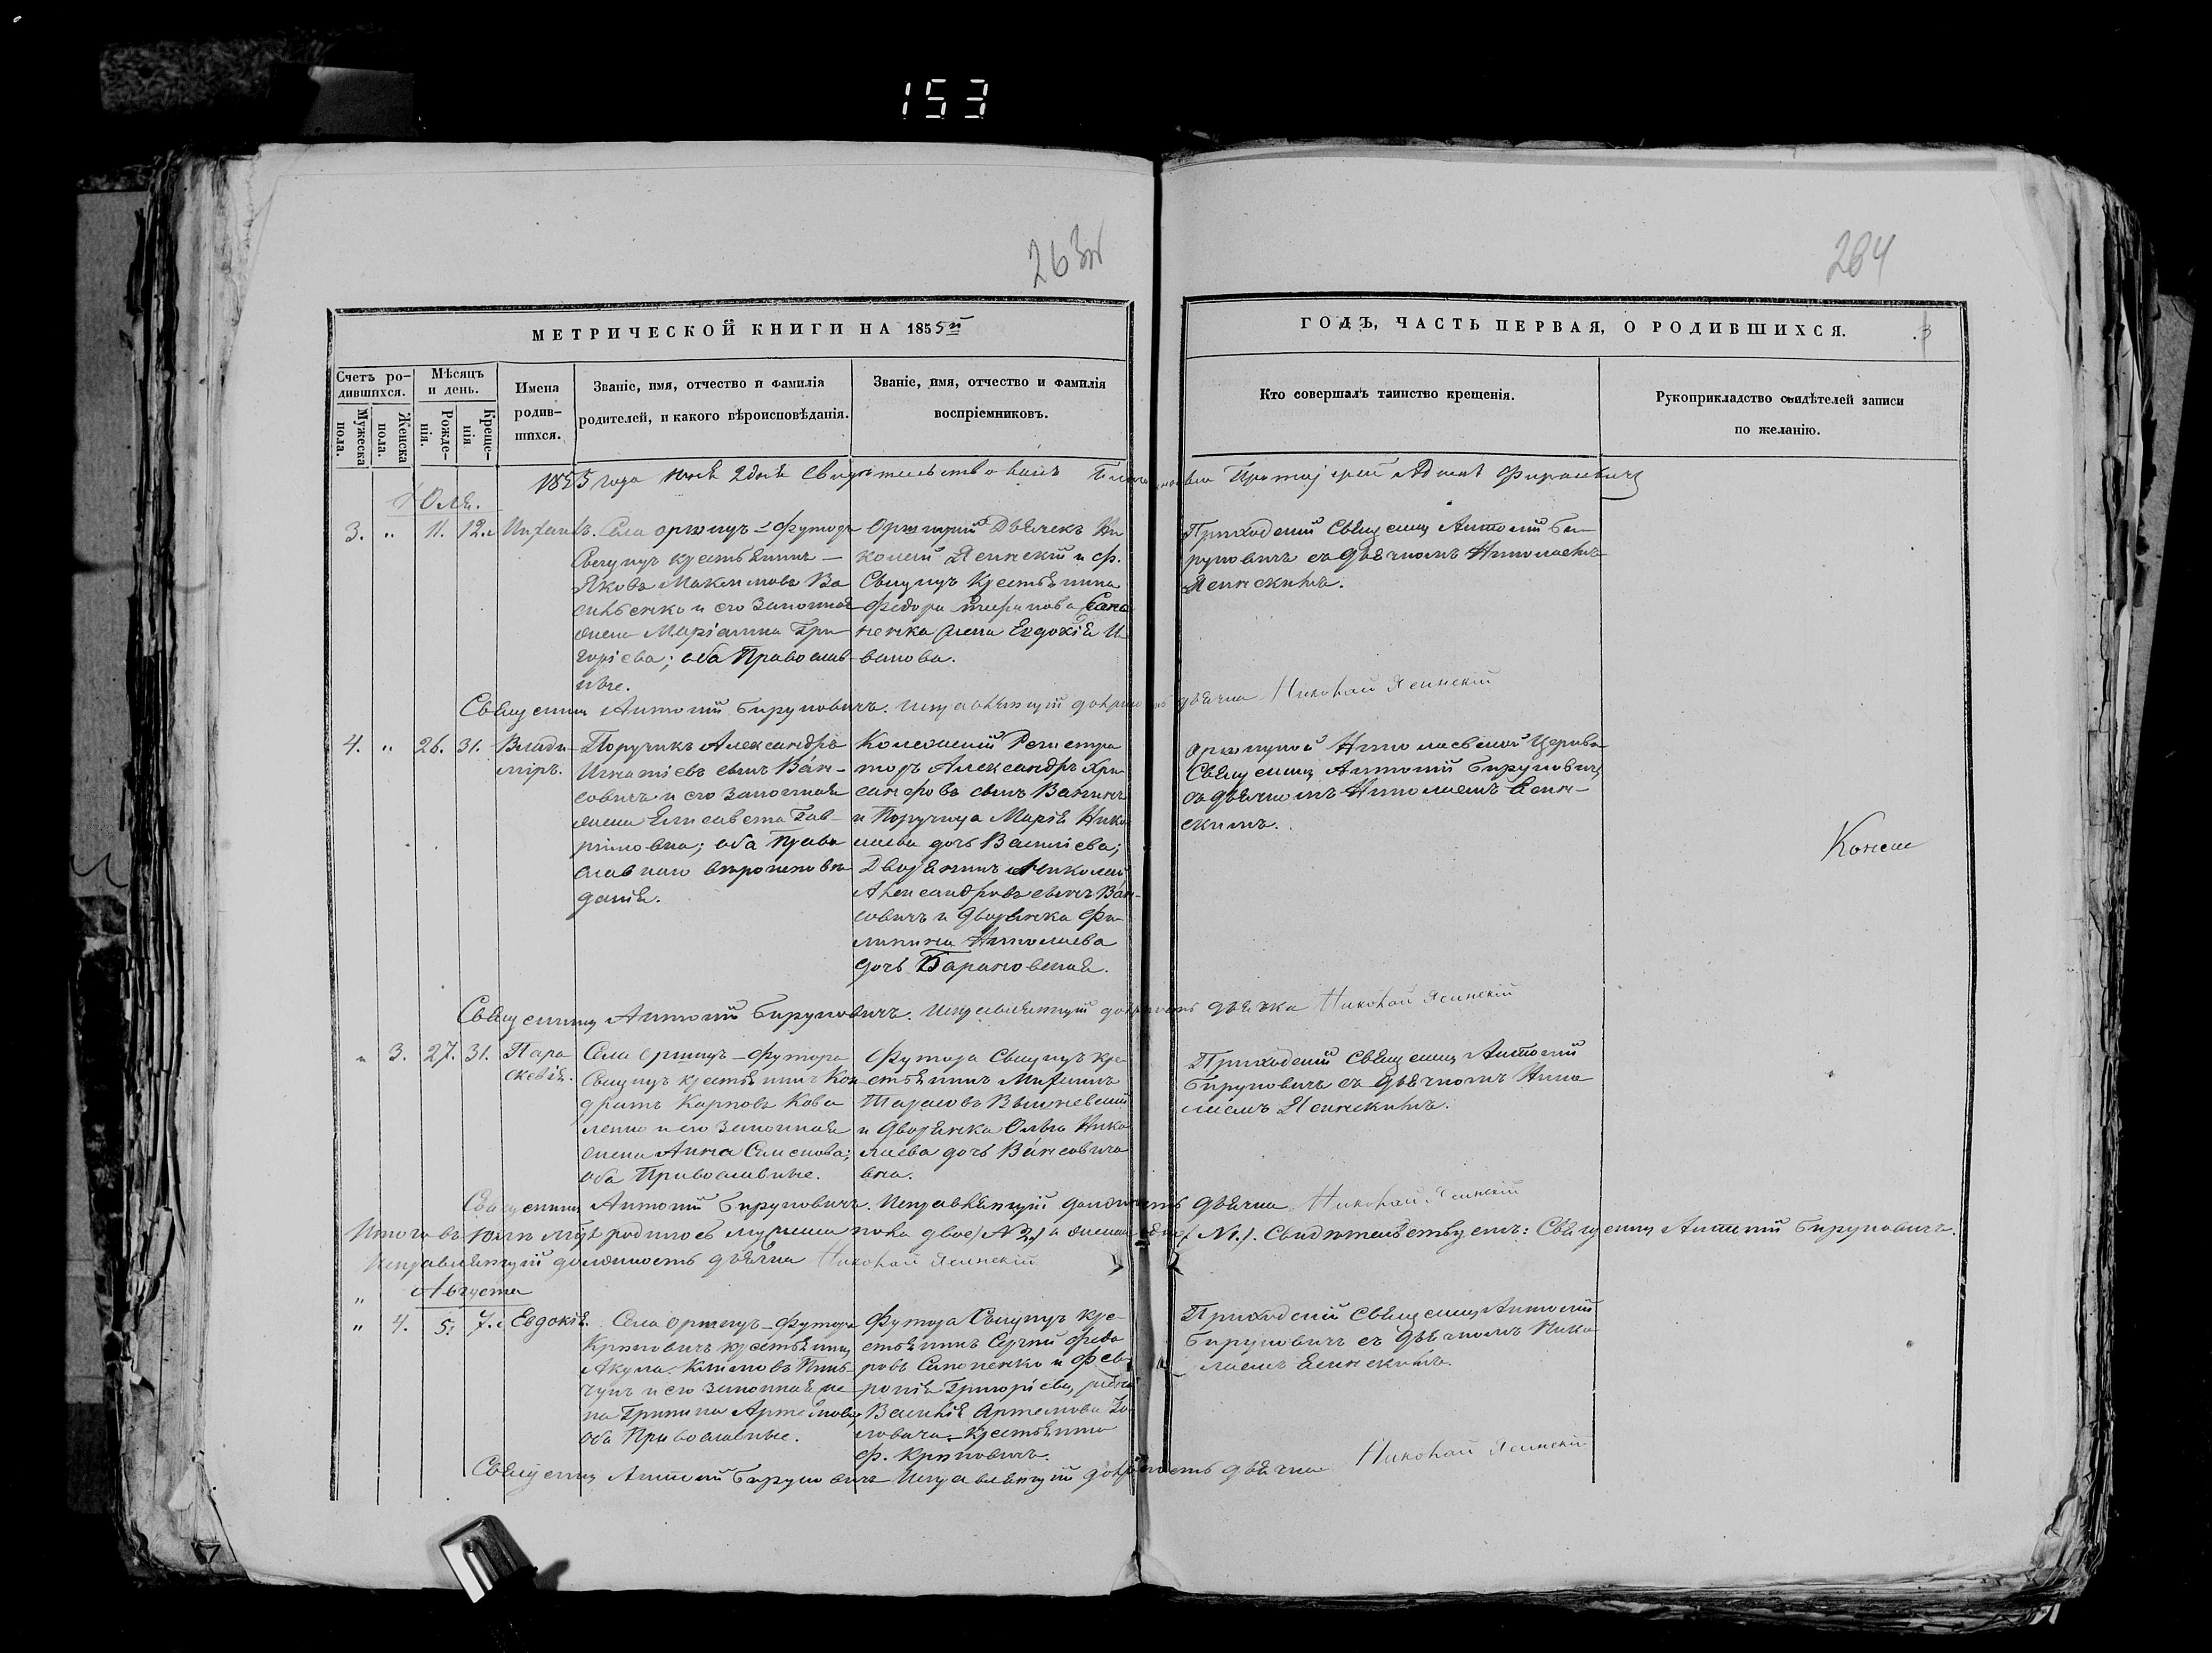 153
263
264
МЕТРИЧЕСКОЙ КНИГИ НА 1855й
ГОДЪ, ЧАСТЬ ПЕРВАЯ, О РОДИВШИХСЯ.
3
Счетъ ро-
дившихся.
Мужеска
пола.
Женска
пола.
Мѣсяцъ
и день.
Рожде-
нія.
Креще-
нія
Имена
родив-
шихся.
Званіе, имя, отчество и фамилія
родителей, и какого вѣроисповѣданія.
Званіе, имя, отчество и фамилія
воспріемниковъ.
Кто совершалъ таинство крещенія.
Рукоприкладство свидѣтелей записи
по желанію.
1855 года 2 дня Свидѣтельствовалъ Протоіерей
Юля.
3. " 11. 12. Михаилъ.
Села хутора
Свищукъ крестьянинъ
Яковъ Максимовъ Ва
сильенко и его законная
жена Маріанна Гри
горіева; оба Православ
ные.
Дьячекъ Ни
колай Ясинскій и ф.
Свищукъ крестьянина
Федора
ненка жена Евдокія И
ванова.
Приходскій Священникъ Антоній Би-
руковичъ съ дьячкомъ Николаемъ
Ясинскимъ.
Священникъ Антоній Бируковичъ. Исправляющій должность дьячка Николай Ясинскій
4. " 26. 31. Влади
міръ.
Поручикъ Александръ
Игнатіевъ сынъ Ван-
совичъ и его законная
жена Елисавета Гав-
риловна; оба Право
славнаго вѣроисповѣ
данія.
Коллежскій Регистра
торъ Александръ Хри
санфовъ сынъ
и Поручица Марія Нико
лаева дочь Василіева;
Дворянинъ Николай
Александровъ сынъ Ван-
совичъ и дворянка Фи-
липина Николаева
дочь Барановская.
Николаевской Церкви
Священникъ Антоній Бируковичъ
съ дьячкомъ Николаемъ Ясин-
скимъ.
Священникъ Антоній Бируковичъ. Исправляющій должность дьячка Николай Ясинскій
" 3. 27. 31. Пара
скевія.
Села хутора
Свищукъ крестьянинъ Кон
дратъ Карповъ Кова
ленко и его законная
жена Анна Семенова;
оба Православные.
Хутора Свищукъ кре
стьянинъ Михаилъ
Тарасовъ Вишневскій
и дворянка Ольга Нико
лаева дочь Вансовичо
вна.
Приходскій Священникъ Антоній
Бируковичъ съ дьячкомъ Нико
лаемъ Ясинскимъ.
Священникъ Антоній Бируковичъ. Исправляющій должность дьячка Николай Ясинскій
Итого въ Юлѣ м-цѣ родилось мужеска пола двое (№ 2.) и женска одна (№ 1.). Свидѣтельствуемъ: Священникъ Антоній Бируковичъ.
Исправляющій должность дьячка Николай Ясинскій
" Августа
" 4. 5. 7. Евдокія.
Села хутора
Криповичъ крестьянинъ
Акула Климовъ
и его законная же
на Грипина Артемова;
оба Православные.
Хутора Свищукъ кре-
стьянинъ Сергій Федо
ровъ Сапоненко и Фев
ронія Григоріева, жена
Василія Артемова
крестьянина
ф. Криповичъ.
Приходскій Священникъ Антоній
Бируковичъ съ дьячкомъ Нико
лаемъ Ясинскимъ.
Священникъ Антоній Бируковичъ Исправляющій должность дьячка Николай Ясинскій